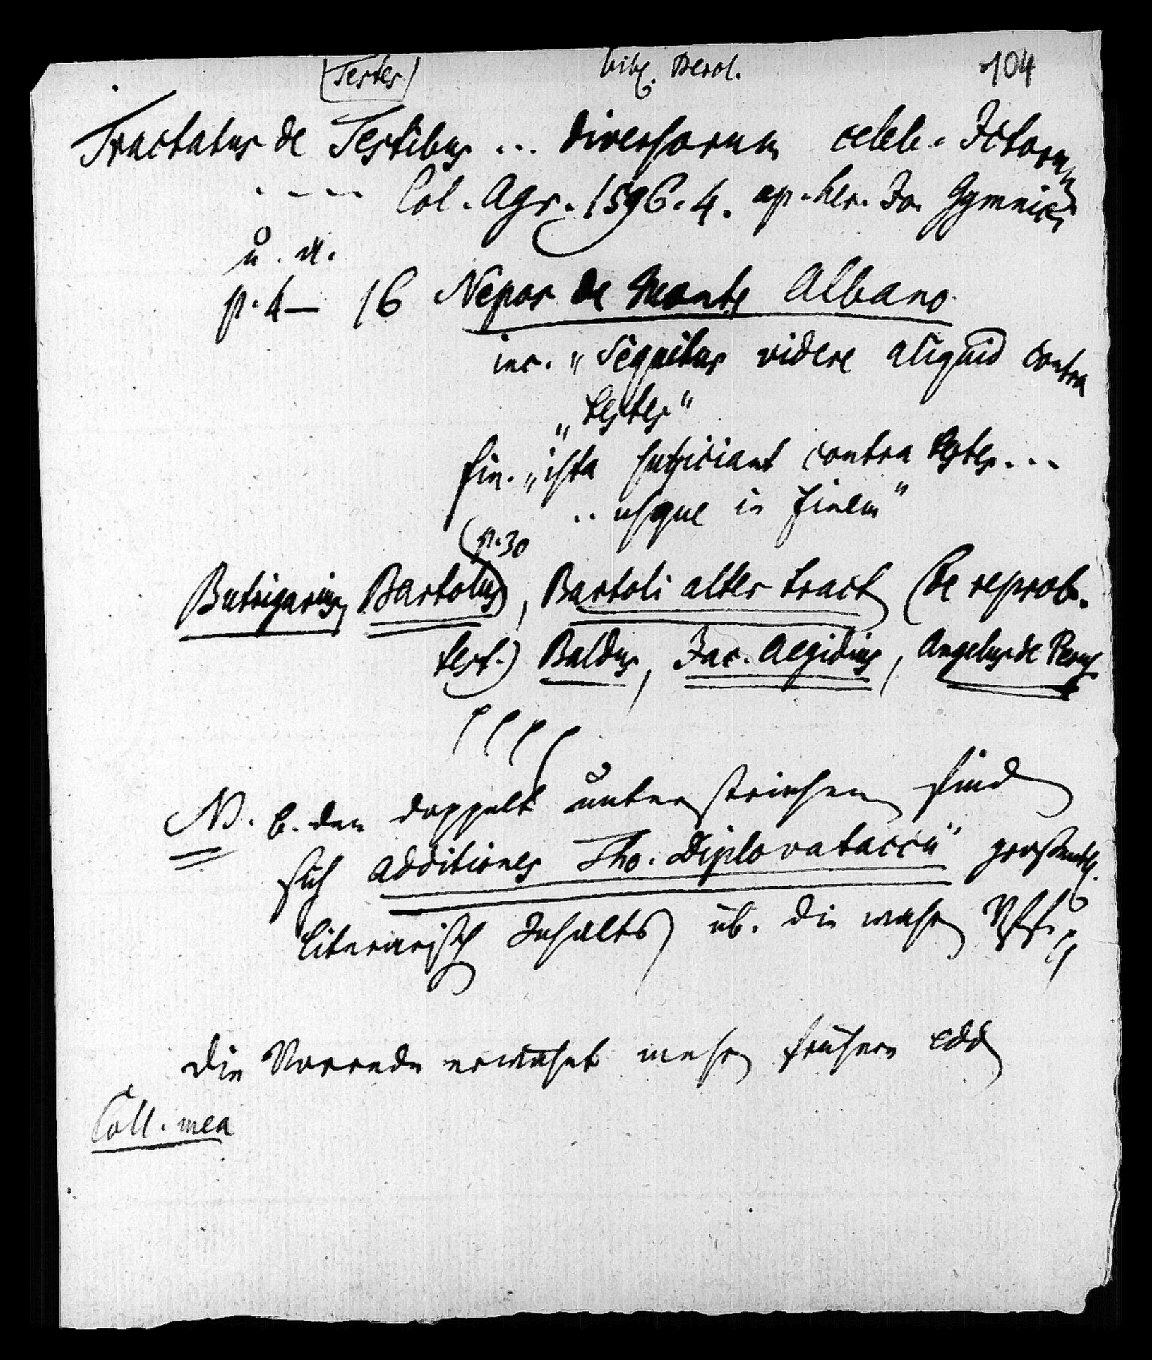 (Testes) bibl. Berol. 104
Tractatus de Testibus ... diversorum celeb. Ictorum
. - - - Col. Agr. 1596. 4. ap. her. Jo. Gymnici
u. a.
p. 4 — 16 Nepos de Monte Albano
inc. „Sequitur videre aliquid contra
„testes“
fin. „ista sufficiant contra testes ...
.. usque in finem“
(p. 30
Butrigarius, Bartolus), Bartoli alter tract. (de reprob.
test.) Baldus, Jac. Aegidius, Angelus de Perus.
NB. b. den doppelt unterstrichenen find
sich Additiones Tho. Diplovataccii“ großenth.
literarisch Inhalts, üb. die
Die Vorrede erwähnt mehr frühere edd
Coll. mea